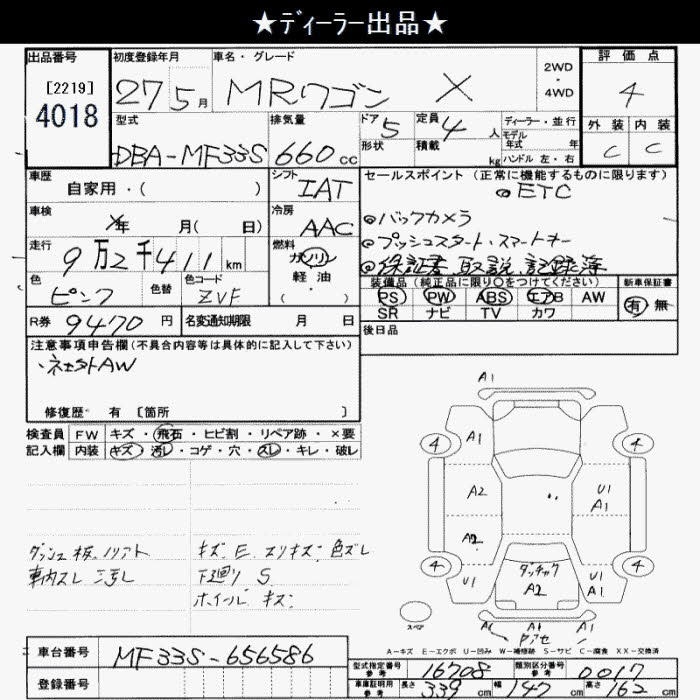 ★ディーラー出品★
出品番号
[2219]
4018
初度登録年月
27 5月
車名・グレード
MRワゴン X
2WD
・
4WD
評価点
4
外装 内装
C C
型式
DBA-MF33S
排気量
660cc
ドア 5
形状
定員 4人
積載 kg
ディーラー・並行
モデル
年式 年
ハンドル 左・右
車歴
自家用・( )
シフト
IAT
セールスポイント (正常に機能するものに限ります)
◎ETC
◎バックカメラ
◎プッシュスタート・スマートキー
◎保証書 取説 記録簿
車検
X年 月( 日)
冷房
AAC
走行
9万2千411km
燃料
ガソリン
軽・油
( )
色
ピンク
色替
色コード
ZVF
装備品(純正品に限り○をつけてください)
PS PW ABS エアB AW
SR ナビ TV カワ
新車保証書
有 無
R券 9470円
名変通知期限 月 日
後日品
注意事項申告欄(不具合内容等は具体的に記入して下さい)
修復歴・ 有 〔箇所 〕
検査員
記入欄
FW キズ・飛石・ヒビ割・リペア跡・×要
内装 キズ・汚レ・コゲ・穴・スレ・キレ・破レ
キズ E スリキズ 色ズレ
下廻り S
ホイール キズ
A1
4 A1 4
A2 U1
A1
A2
4 4
U1 U1
A1
A2
スペア
A1 A1
A-キズ E-エクボ U-凹み W-補修跡 S-サビ C-腐食 XX-交換済
車台番号
MF33S-656586
登録番号
型式指定番号
参考
16708
類別区分番号
参考
0017
車庫証明用
参考
長さ 339cm 幅 147cm 高さ 162cm